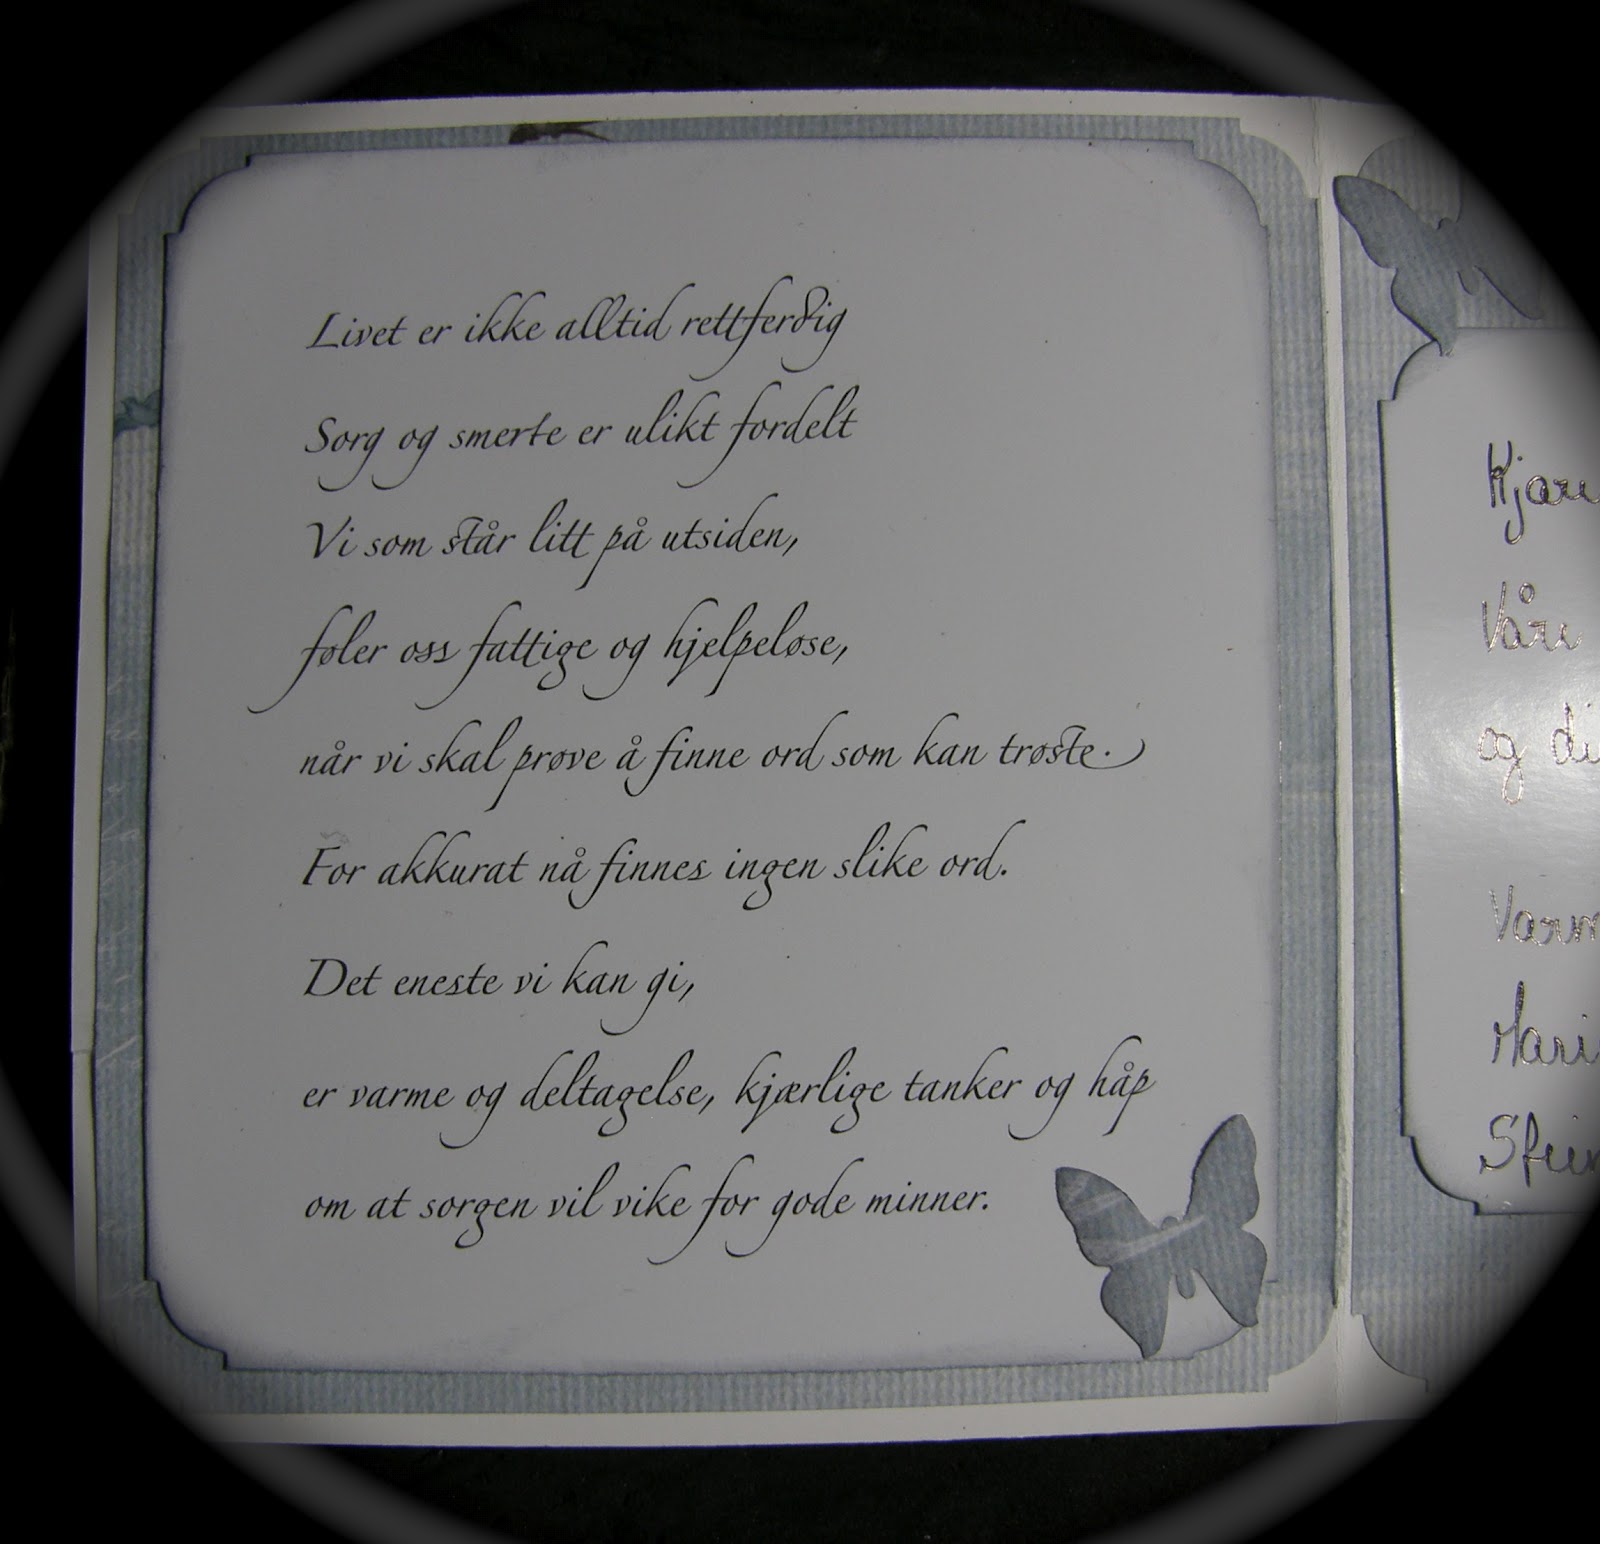 Livet er ikke alltid rettferdig
Sorg og smerte er ulikt fordelt
Vi som står litt på utsiden,
føler oss fattige og hjelpeløse,
når vi skal prøve å finne ord som kan trøste.
For akkurat nå finnes ingen slike ord.
Det eneste vi kan gi,
er varme og deltagelse, kjærlige tanker og håp
om at sorgen vil vike for gode minner.
og